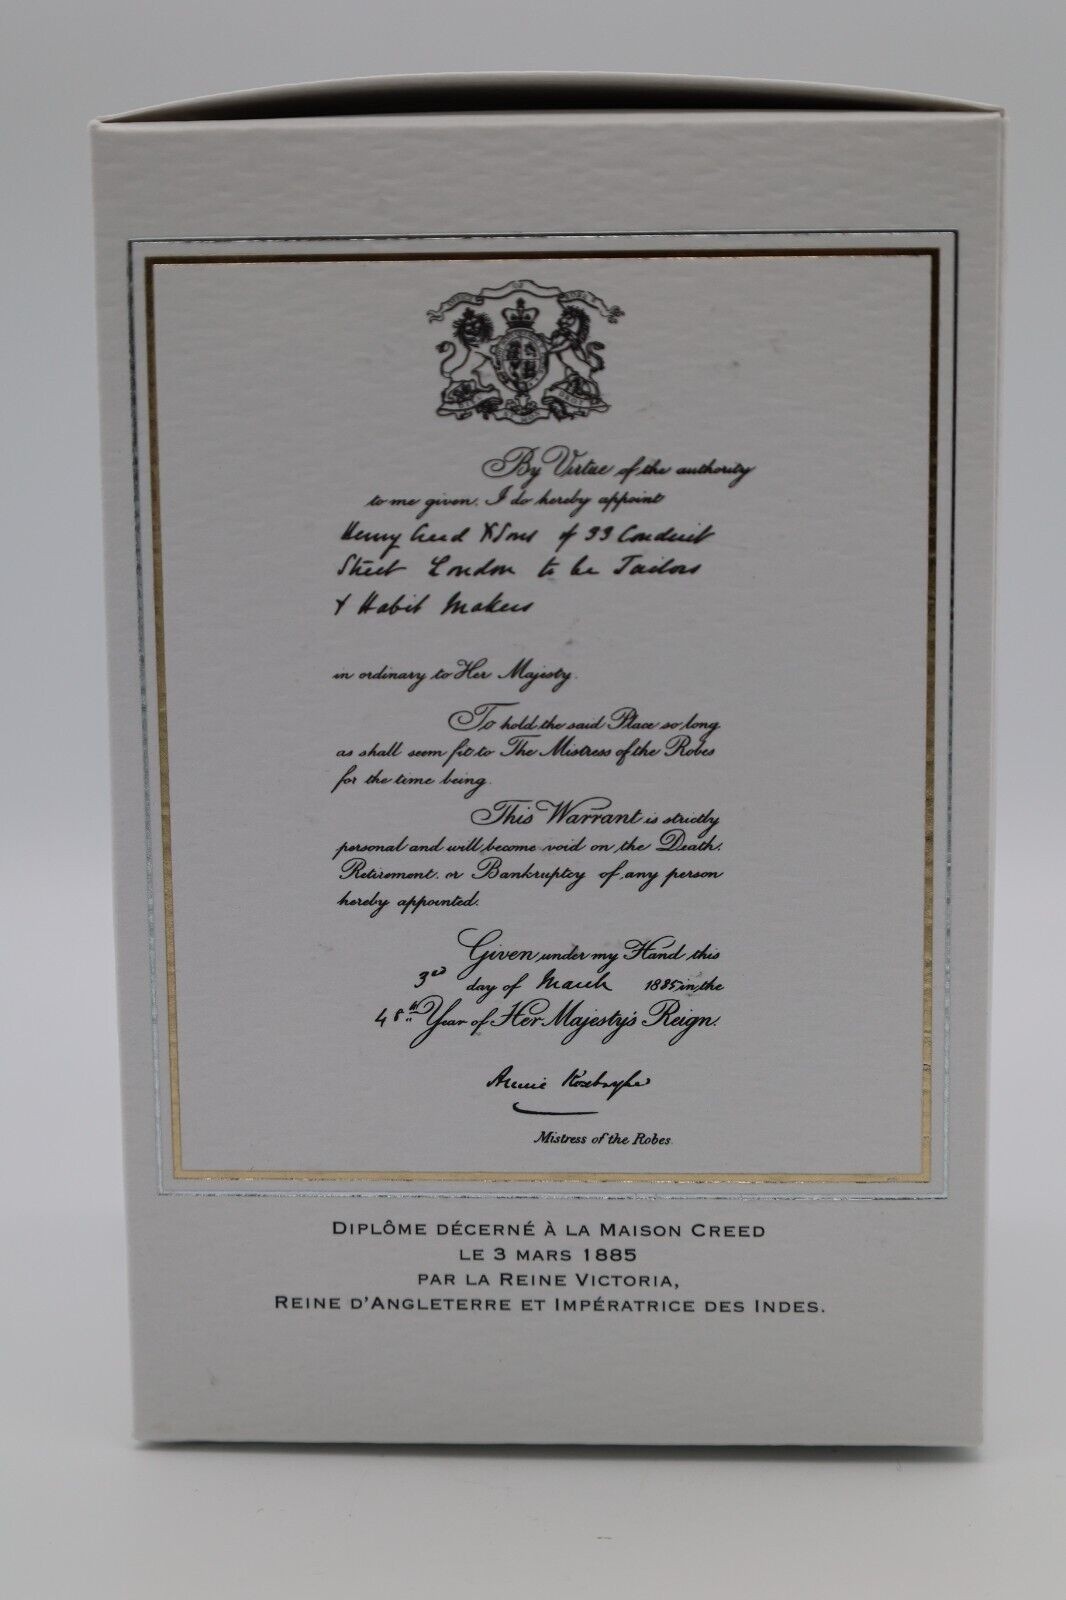 By Virtue of the authority
to me given. I do hereby appoint
Henry Creed & Sons of 33 Conduit
Street London to be Tailors
& Habit Makers
in ordinary to Her Majesty.
To hold the said Place so long
as shall seem fit to The Mistress of the Robes
for the time being.
This Warrant is strictly
personal and will become void on the Death.
Retirement. or Bankruptcy of any person
hereby appointed.
Given under my Hand this
3rd day of March 1885 in the
48th Year of Her Majesty's Reign.
Annie Roxburghe
Mistress of the Robes.
DIPLÔME DÉCERNÉ À LA MAISON CREED
LE 3 MARS 1885
PAR LA REINE VICTORIA,
REINE D'ANGLETERRE ET IMPÉRATRICE DES INDES.